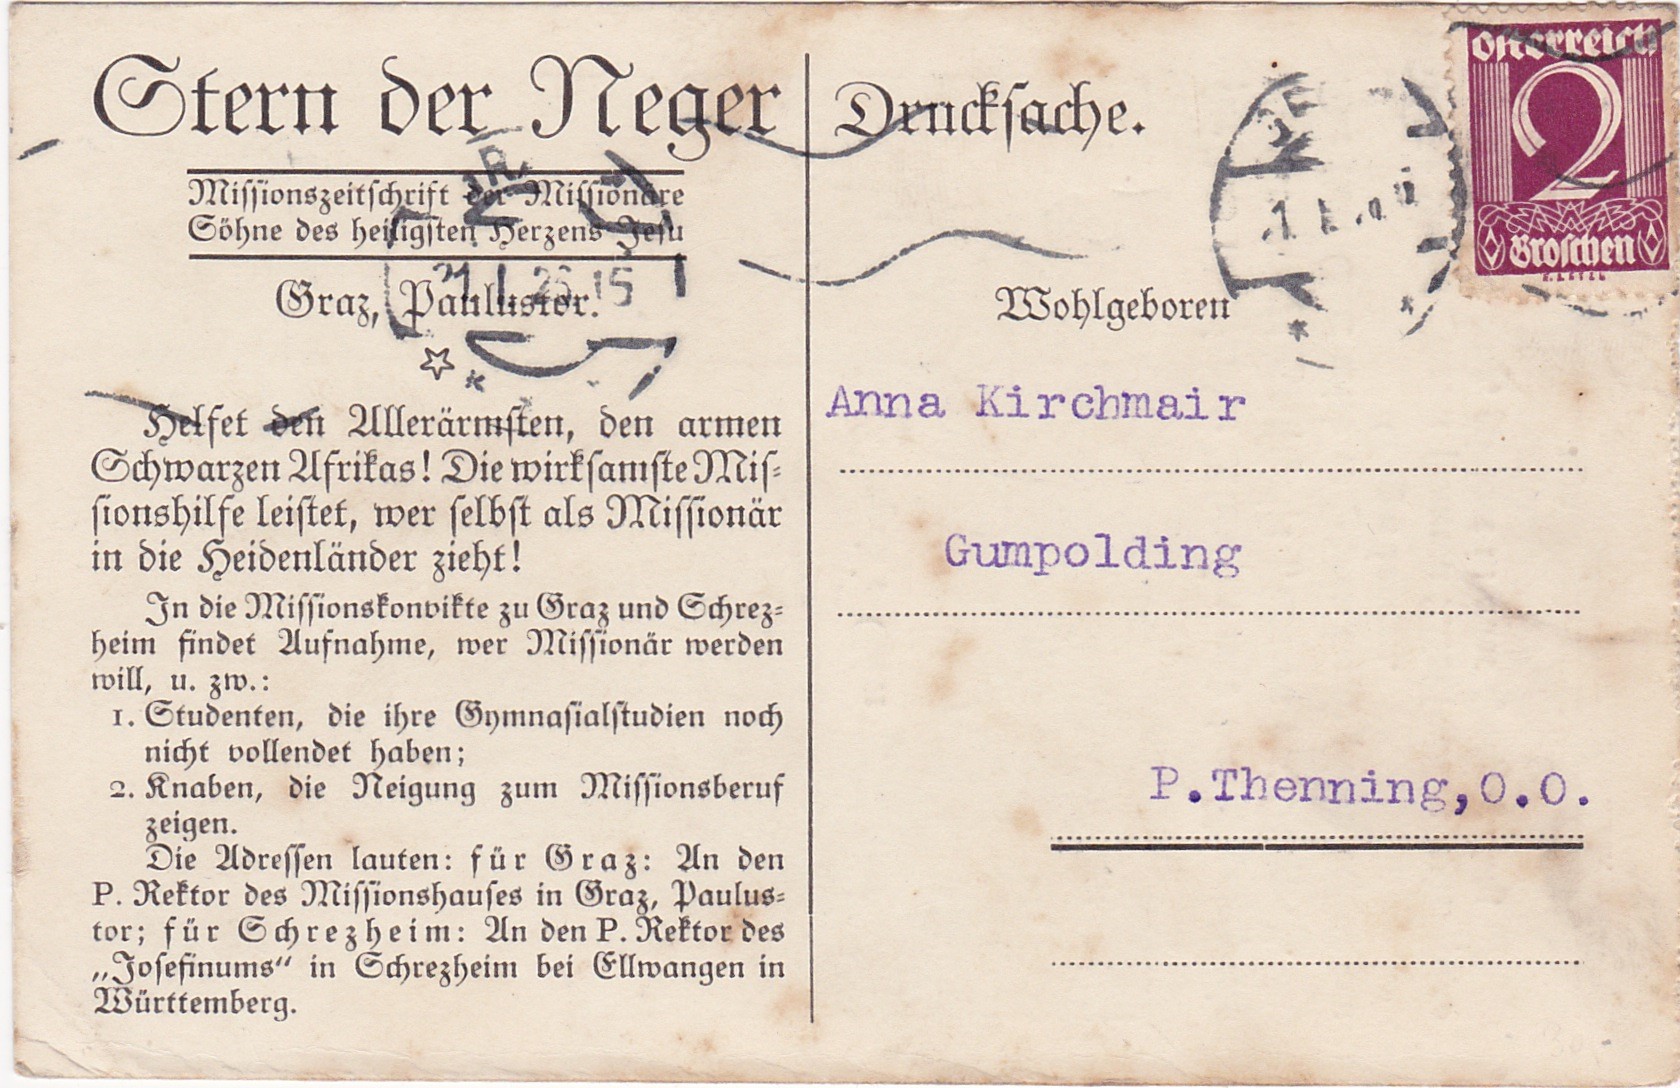 Stern der Neger
Missionszeitschrift der Missionäre
Söhne des heiligsten Herzens Jesu
Graz, Paulustor.
Helfet den Allerärmsten, den armen
Schwarzen Afrikas! Die wirksamste Mis-
sionshilfe leistet, wer selbst als Missionär
in die Heidenländer zieht!
In die Missionskonvikte zu Graz und Schrez-
heim findet Aufnahme, wer Missionär werden
will, u. zw.:
1. Studenten, die ihre Gymnasialstudien noch
nicht vollendet haben;
2. Knaben, die Neigung zum Missionsberuf
zeigen.
Die Adressen lauten: für Graz: An den
P. Rektor des Missionshauses in Graz, Paulus-
tor; für Schrezheim: An den P. Rektor des
„Josefinums“ in Schrezheim bei Ellwangen in
Württemberg.
Drucksache.
Wohlgeboren
Anna Kirchmair
Gumpolding
P.Thenning,O.O.
Österreich
2
Groschen